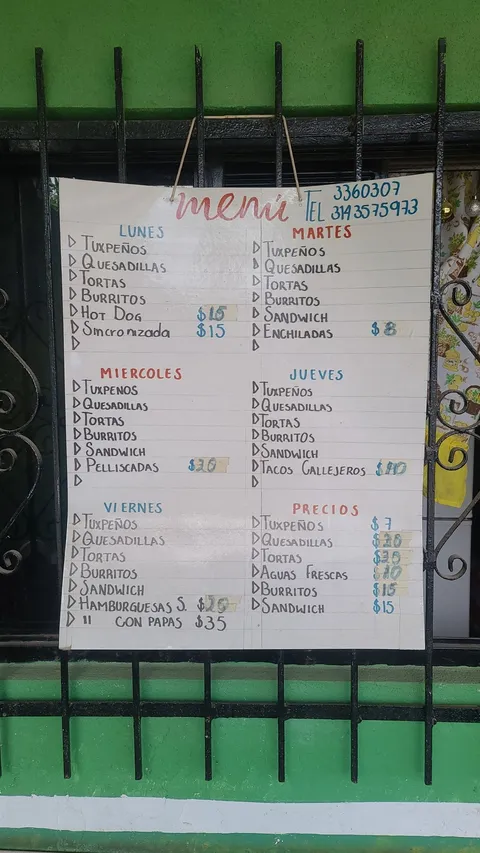 menú TEL 3360307
3143575973
LUNES
TUXPEÑOS
QUESADILLAS
TORTAS
BURRITOS
HOT DOG $15
Sincronizada $15
MARTES
TUXPEÑOS
QUESADILLAS
TORTAS
BURRITOS
SANDWICH
ENCHILADAS $8
MIERCOLES
TUXPENOS
QUESADILLAS
TORTAS
BURRITOS
SANDWICH
PELLISCADAS $20
JUEVES
TUXPEÑOS
QUESADILLAS
TORTAS
BURRITOS
SANDWICH
TACOS CALLEJEROS
VIERNES
TUXPEÑOS
QUESADILLAS
TORTAS
BURRITOS
SANDWICH
HAMBURGUESAS S. $20
" CON PAPAS $35
PRECIOS
TUXPEÑOS $7
QUESADILLAS
TORTAS
AGUAS FRESCAS
BURRITOS $15
SANDWICH $15